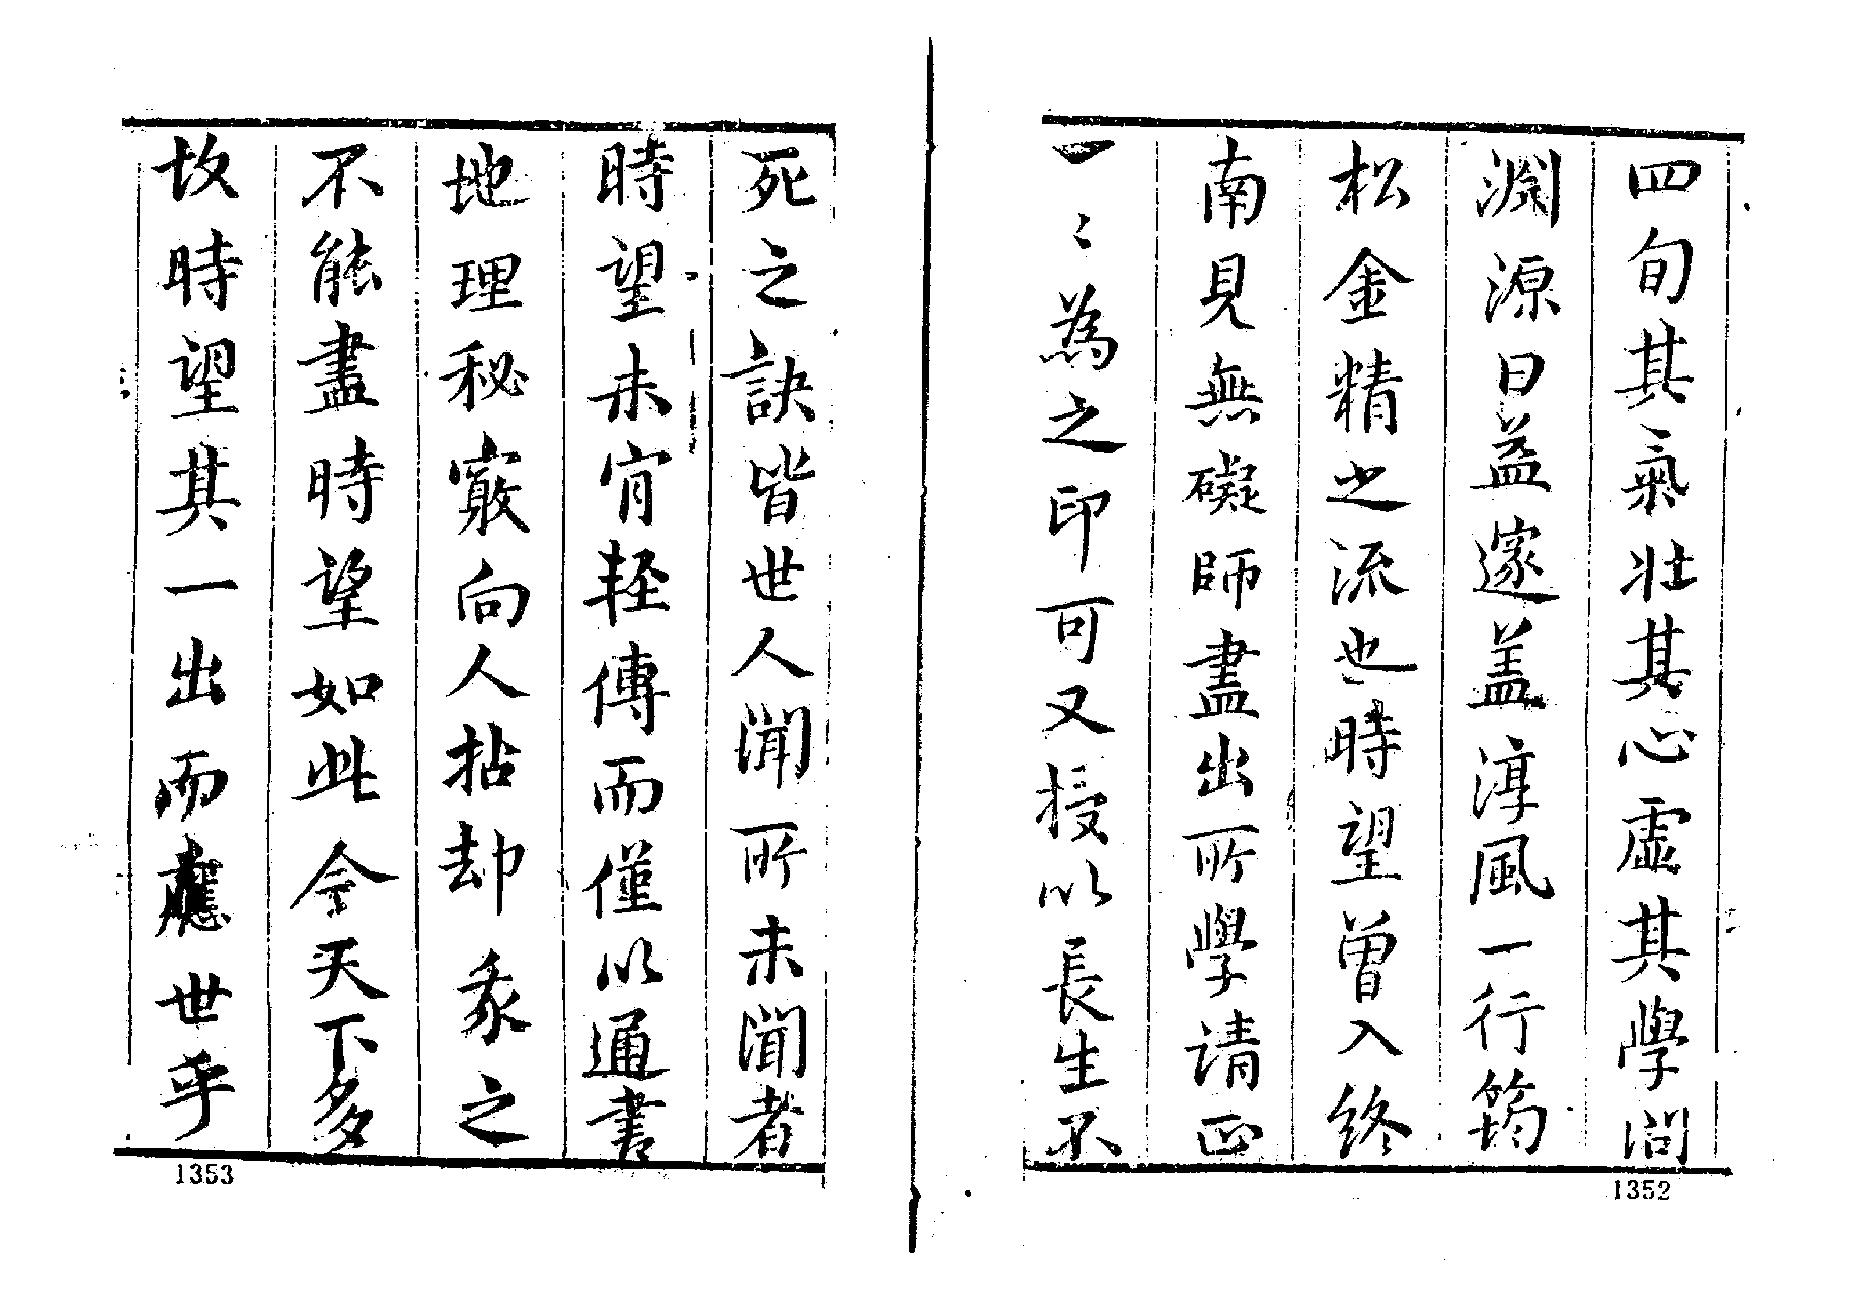 四旬其氣壯其心虛其學問
淵源日益邃盖淳風一行筠
松金精之流也時望曽入終
南見無礙師盡出所學请正
一〻為之印可又授以長生不
1352
死之訣皆世人聞所未聞者
時望未肯軽傳而僅以通書
地理秘竅向人拈却彖之
不能盡時望如此今天下多
故時望其一出而應世乎
1353